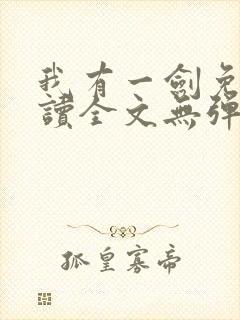 我有一劍免
讀全文無彈
孤皇寡帝